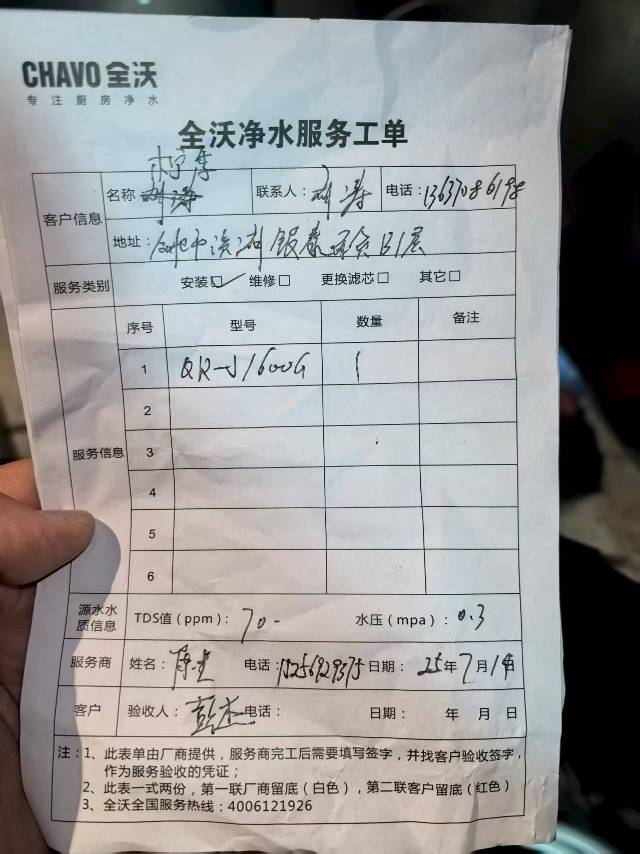 CHAVO 全沃
专注厨房净水
全沃净水服务工单
客户信息
名称
联系人：刘涛
电话：13637086198
地址：合肥市滨湖银泰百货B1层
服务类别
安装☑ 维修□ 更换滤芯□ 其它□
服务信息
序号 型号 数量 备注
1 QR-J1600G 1
2
3
4
5
6
源水水质信息
TDS值（ppm）：70-
水压（mpa）：0.3
服务商
姓名：
电话：15256929375
日期：25年7月1日
客户
验收人：彭杰
电话：
日期： 年 月 日
注：1、此表单由厂商提供，服务商完工后需要填写签字，并找客户验收签字，
作为服务验收的凭证；
2、此表一式两份，第一联厂商留底（白色），第二联客户留底（红色）
3、全沃全国服务热线：4006121926